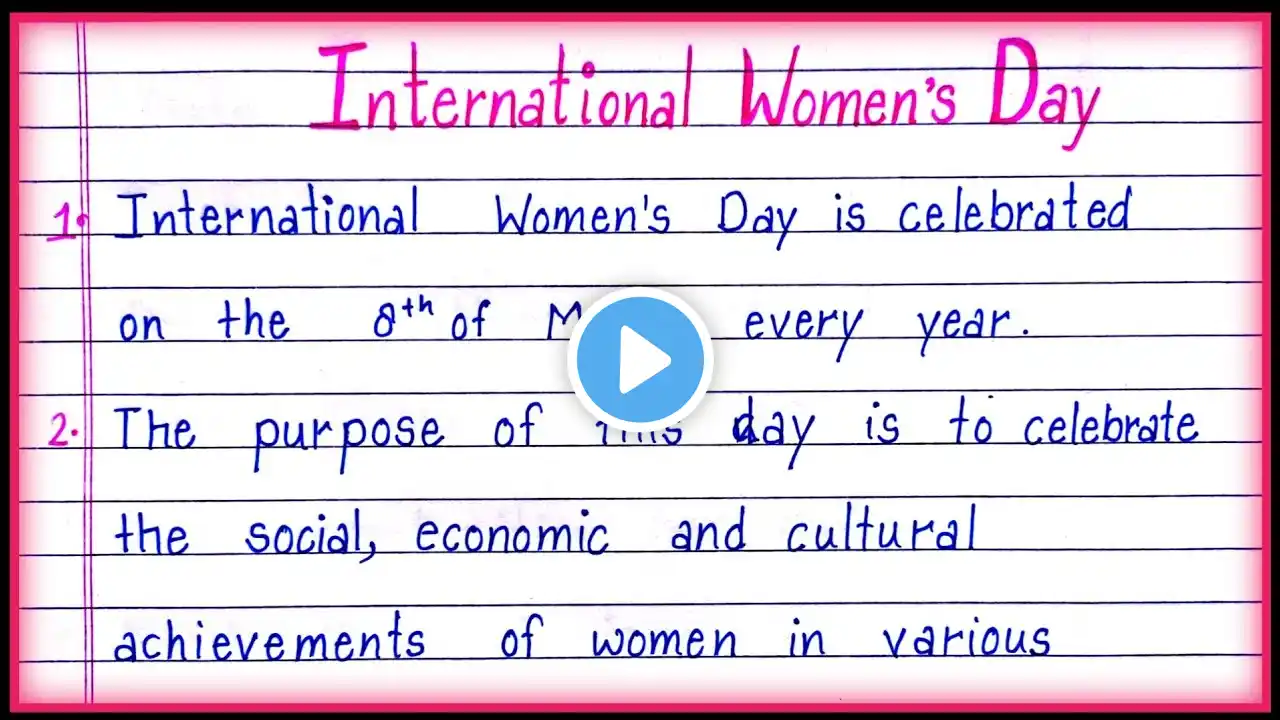 International Women's Day
1. International Women's Day is celebrated
on the 8th of every year.
2. The purpose of this day is to celebrate
the social, economic and cultural
achievements of women in various